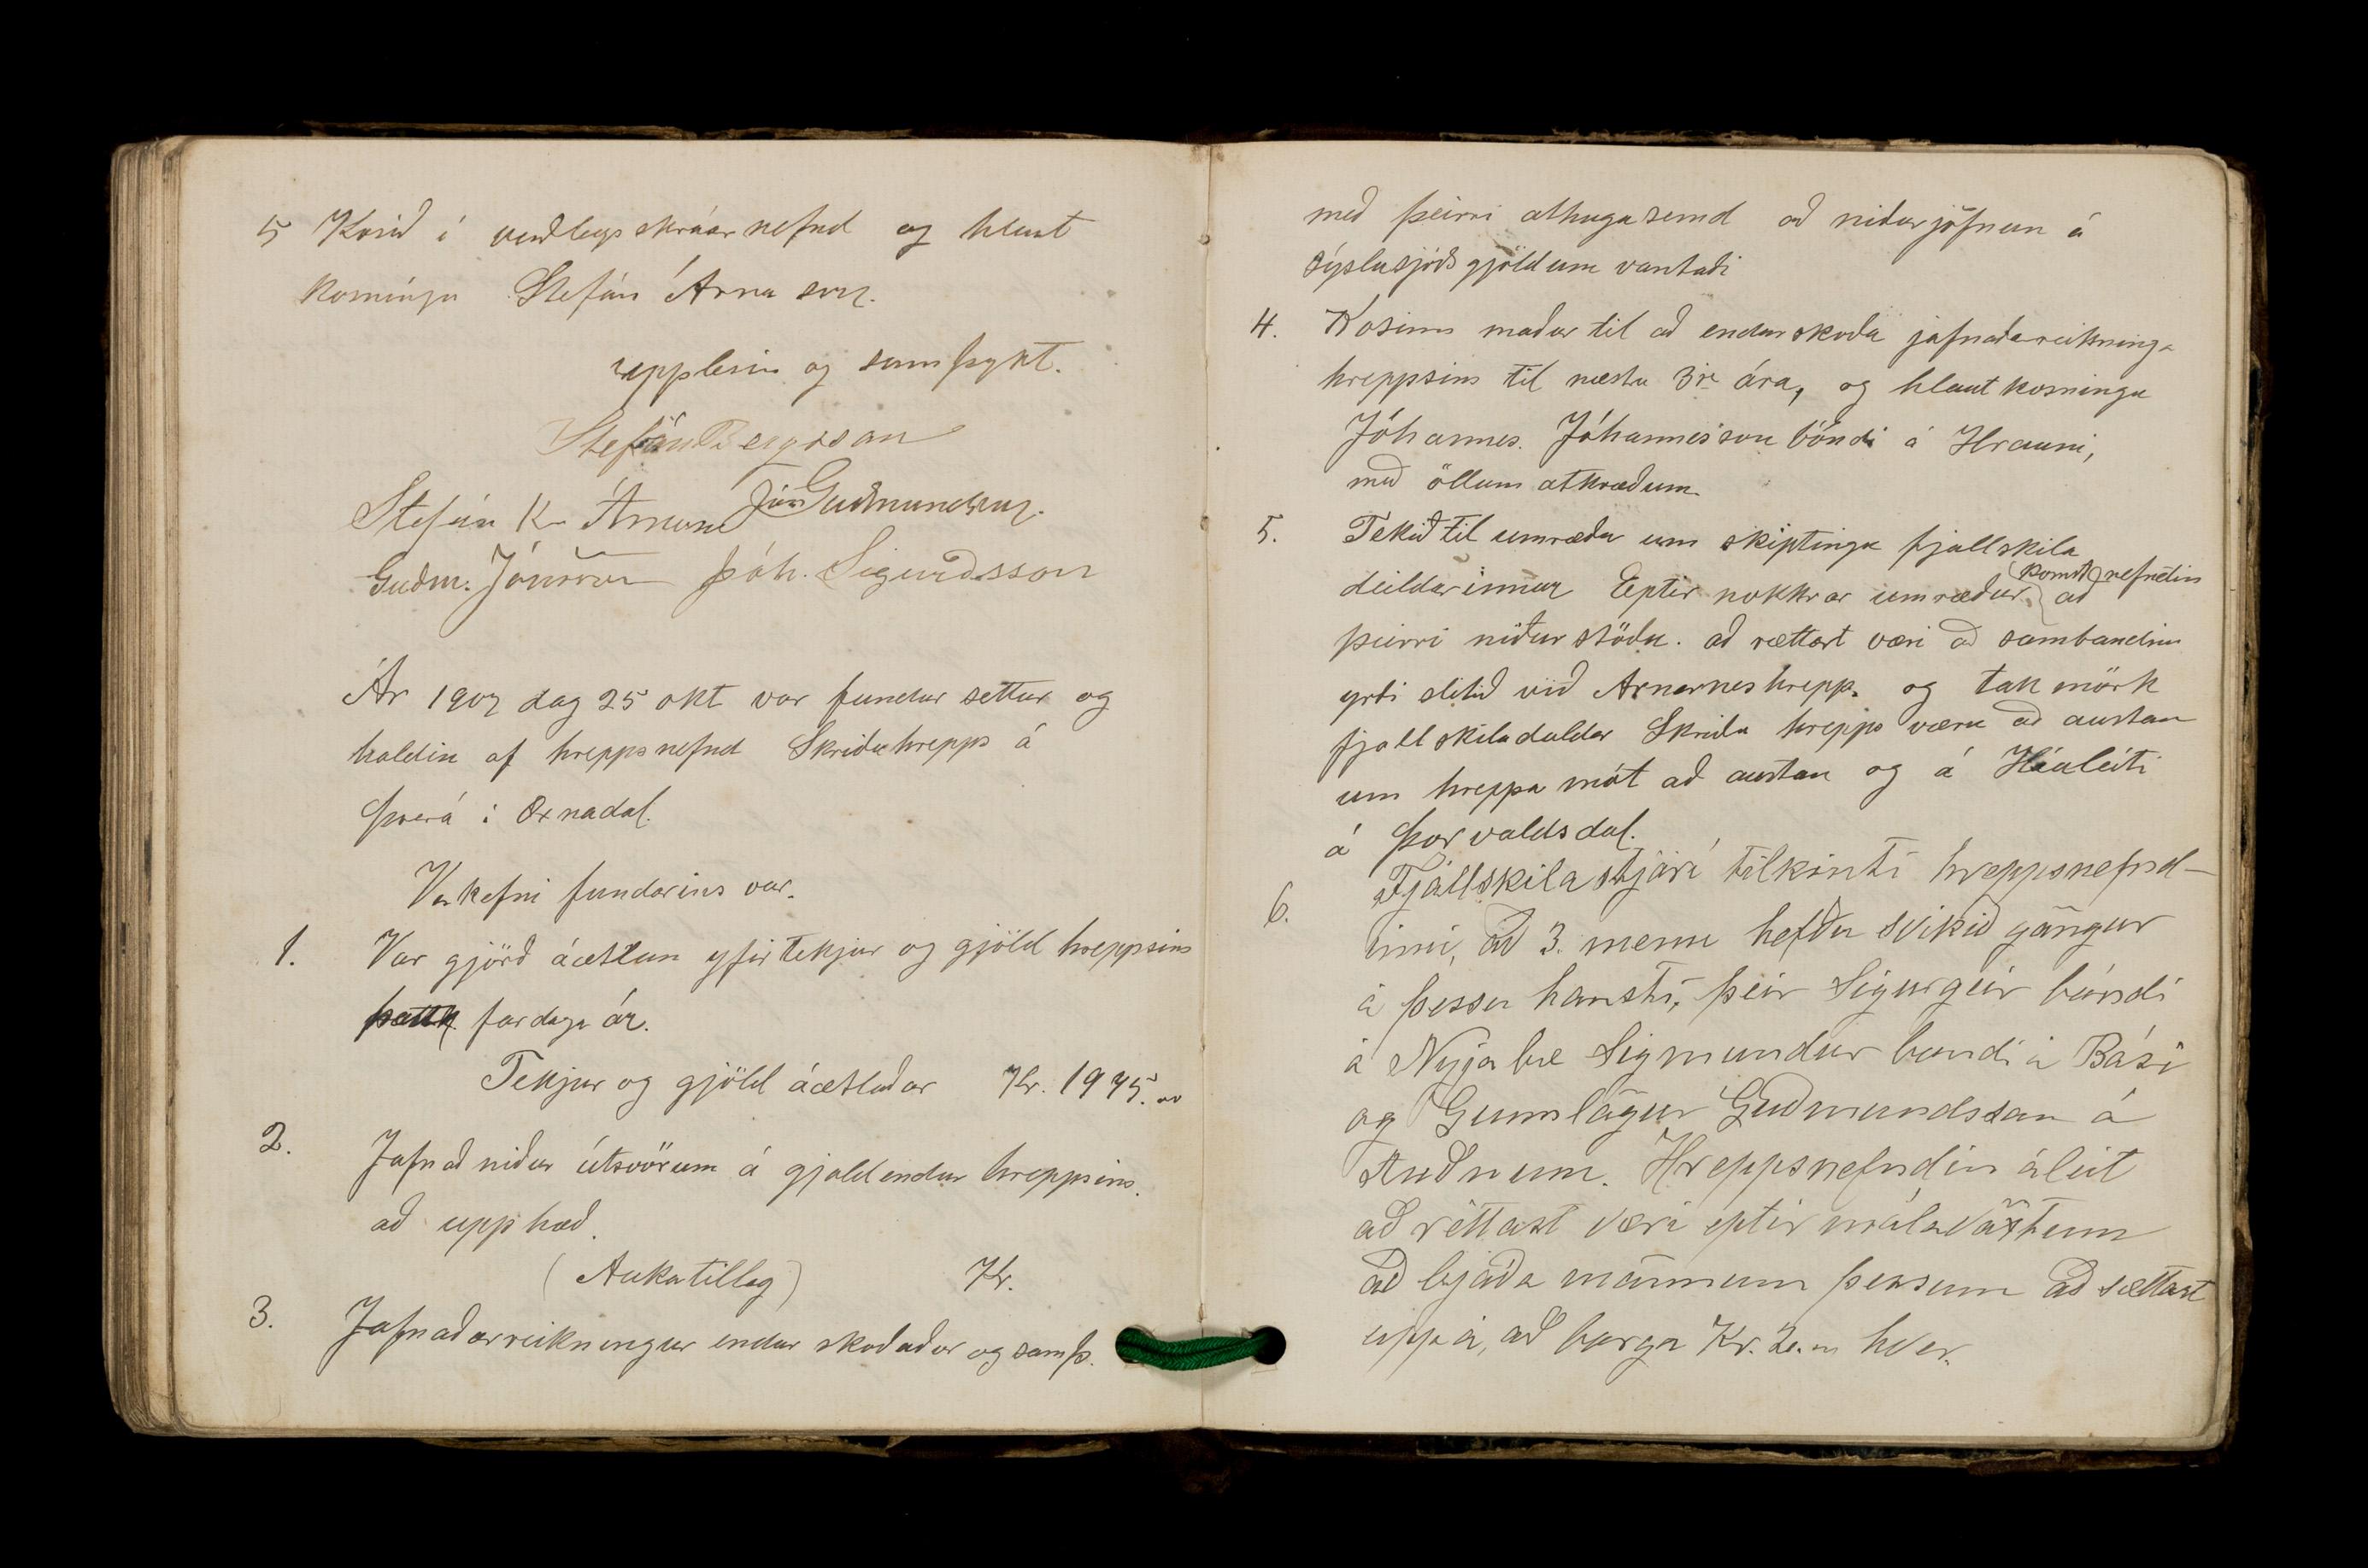 5 Kosið í verðlagsskráarnefnd og hlaut
kosningu Stefán Árnason.
upplesin og samþykt.
Stefán Bergsson
Stefán K Árnason Jón Guðmundsson.
Guðm. Jónsson Þóh. Sigurðsson
Ár 1907 dag 25 okt var fundur settur og
haldin af hreppsnefnd Skriðuhrepps á
Þverá i Öxnadal.
Verkefni fundarins var.
1. Var gjörð áætlun yfir tekjur og gjöld hreppsins
fardaga ár.
Tekjur og gjöld áætlaðar Kr. 1975.00
2. Jafnað niður útsvörum á gjaldendur hreppsins.
að upphæð.
(Aukatillag) Kr.
3. Jafnaðarreikningur endurskoðaður og samþ.
með þeirri athugasemd að niðurjöfnun á
sýslusjóðsgjöldum vantaði
4. Kosinn maður til að endurskoða jafnaðareikninga
hreppsins til næstu 3ja ára, og hlaut kosningu
Jóhannes. Jóhannesson bóndi á Hrauni,
með öllum atkvæðum.
5. Tekið til umræðu um skiptingu fjallskila
deildarinnar Eptir nokkrar umræður komst nefndin að
þeirri niðurstöðu. að rættast væri að sambandinu
yrði slitið við Arnarneshrepp. og takmörk
fjallskiladeildar Skriðuhrepps væru að austan
um hreppamót að austan og á Háaleiti
á Þorvaldsdal.
6. Fjallskilastjóri tilkinti hreppsnefnd-
inni, að 3. menn hefðu svikið gángur
á þessu hausti, þeir Sigurgeir bóndi
á Nyjabæ Sigmundur bondi á Bási
og Gunnlögur Guðmundsson á
Auðnum. Hreppsnefndin áleit
að réttast væri eptir málavöxtum
að bjóða mönnum þessum að sættast
uppá, að borga Kr. 2.00 hver.